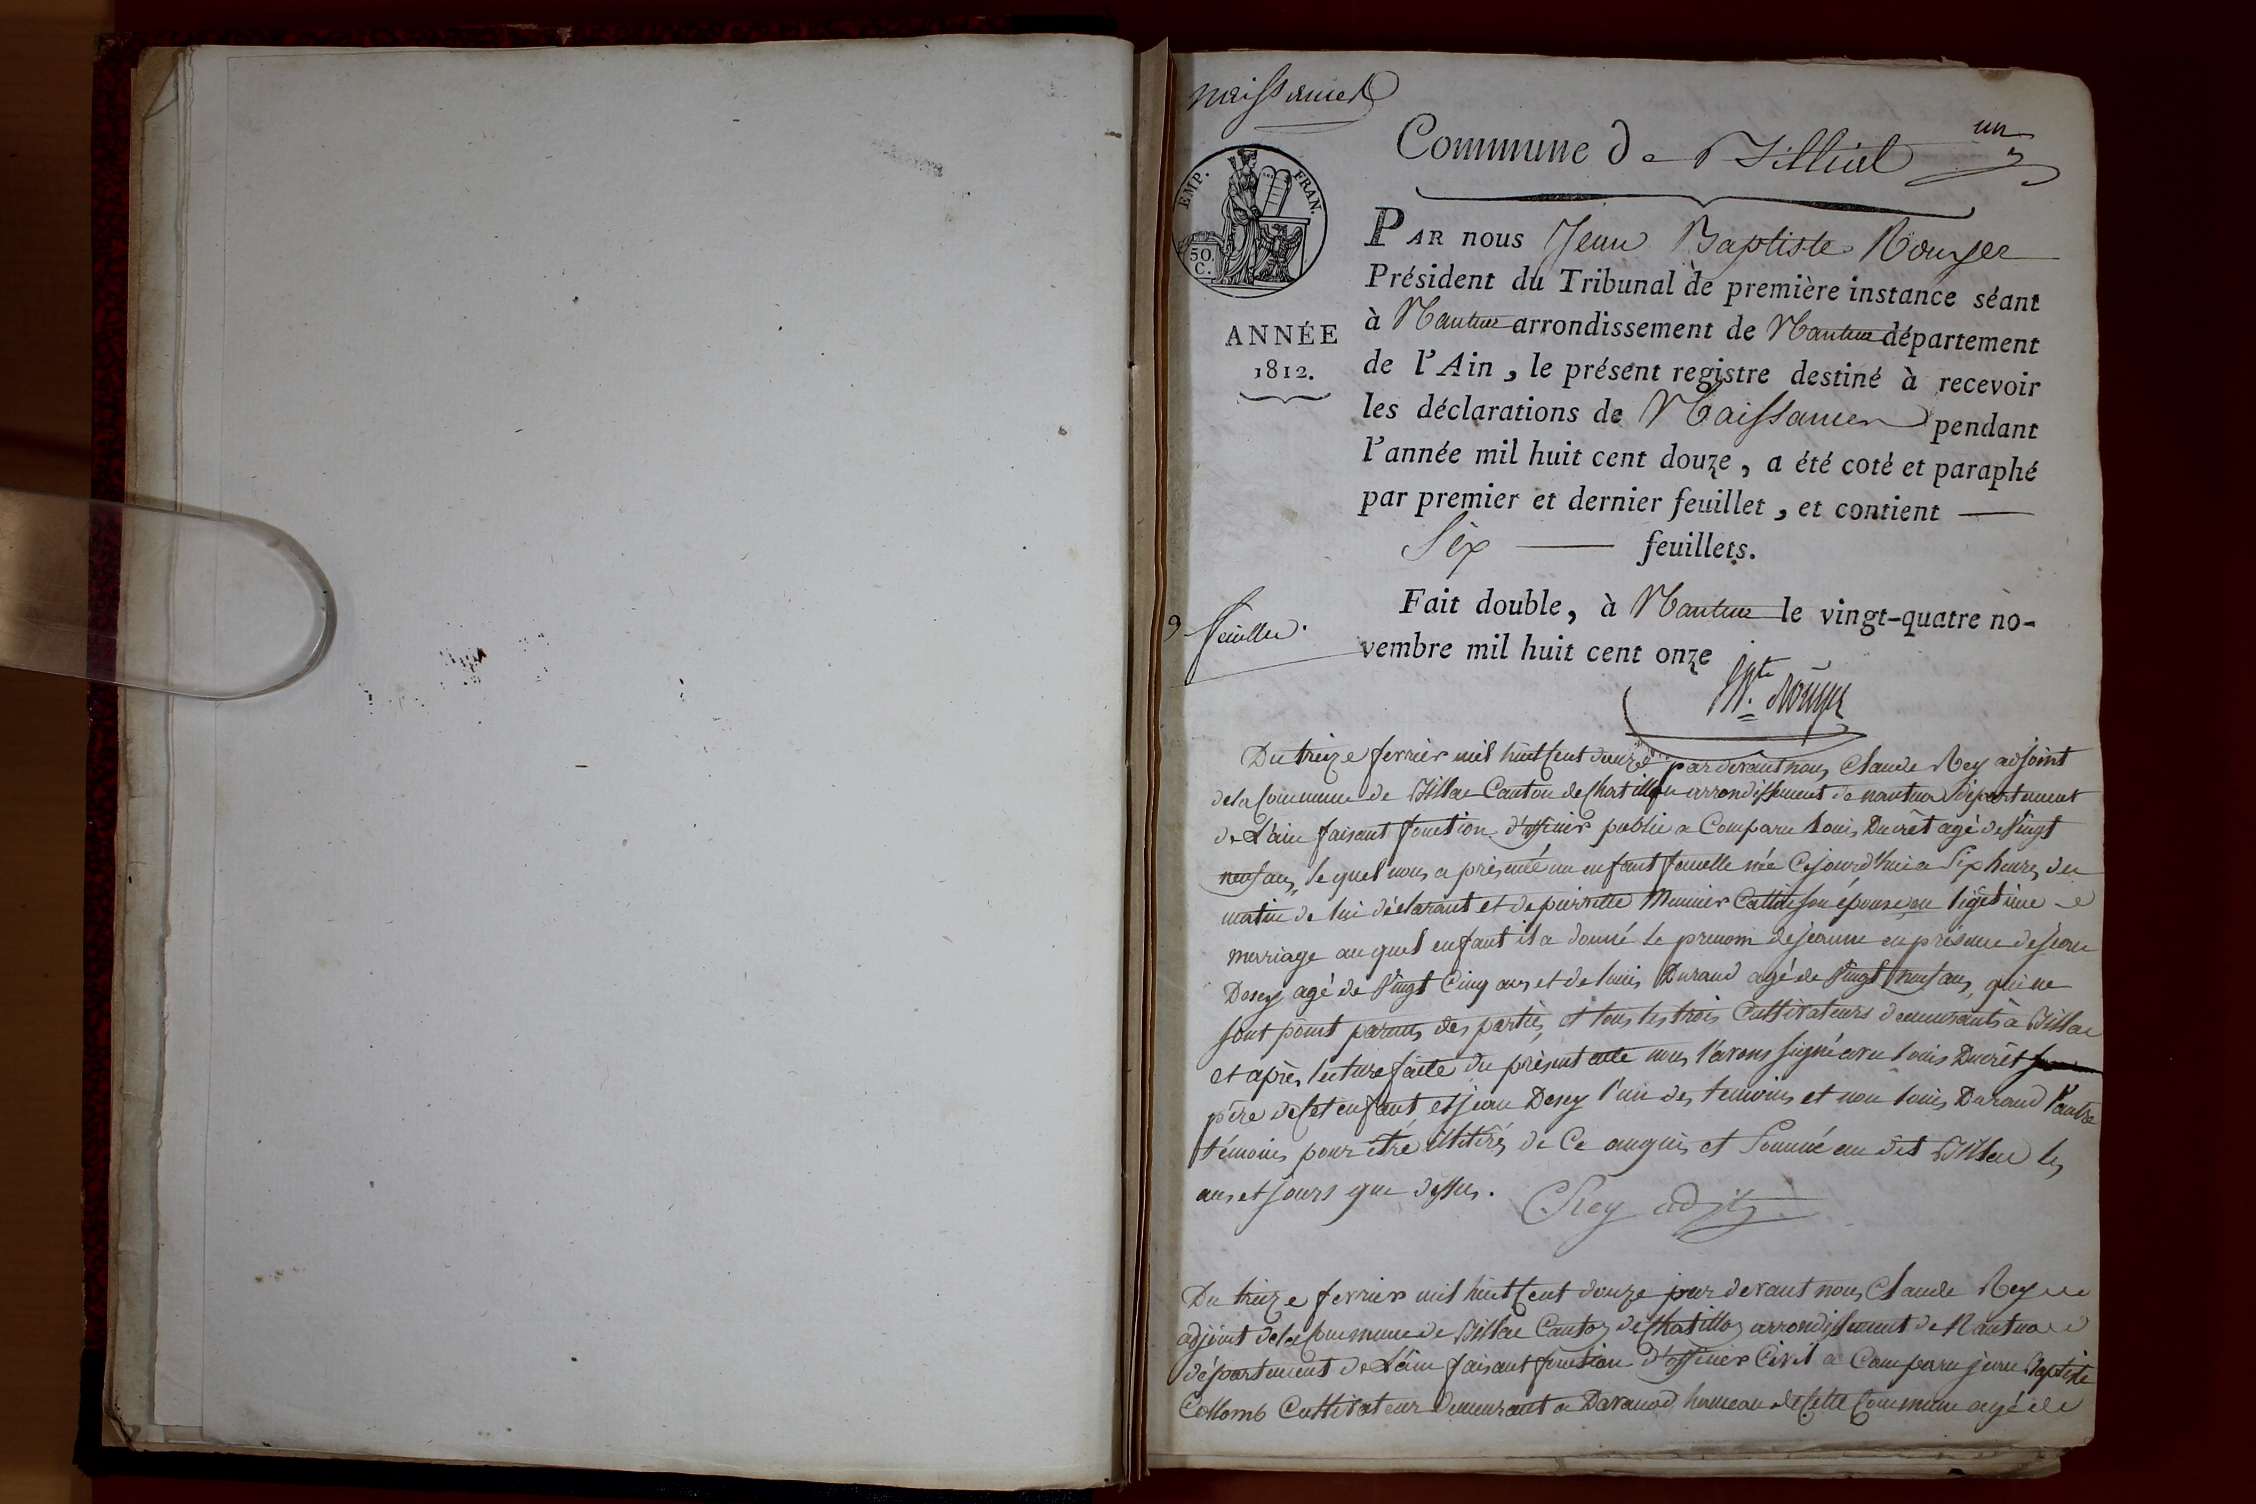 naissances
un
Commune de Billiat
EMP. FRAN.
50.
C.
PAR nous Jean Baptiste Rouyer
Président du Tribunal de première instance séant
ANNÉE
1812.
à Nantua arrondissement de Nantua département
de l'Ain, le présent registre destiné à recevoir
les déclarations de Naissances pendant
l'année mil huit cent douze, a été coté et paraphé
par premier et dernier feuillet, et contient
Six feuillets.
9 feuillets.
Fait double, à Nantua le vingt-quatre no-
vembre mil huit cent onze
Bte. Rouyer
Du treize fevrier mil huit Cent douze par devant nous Claude Rey adjoint
de la Commune de Billiat Canton de Chatillon arrondissement de nantua departement
de L'ain faisant fonction d'officier public a Comparu Louis Ducrêt agé de Vingt
neuf ans, le quel nous a présenté un enfant femelle née Cejourd'huie a Six heures du
matin de lui déclarant et de pierrette Munier Cattin son épouse en légitime
marriage au quel enfant il a donné le prenom de jeanne en présence de jean
Derey agé de Vingt Cinq ans et de louis Durand agé de Vingt neuf ans, qui ne
sont point parens des parties, et tous les trois Cultivateurs demeurants à Billiat
et après lecture faite du présent acte nous l'avons signé avec louis Ducrêt
père de Cet enfant et jean Derey l'un des temoins et non louis Durand l'autre
témoins pour être illitérés de Ce enquis et Sommé au dit Billiat les
ans et jours que dessus.
C Rey adjt
Du treize fevrier mil huit Cent douze par devant nous Claude Rey
adjoint de la Commune de Billiat Canton de Chatillon arrondissement de Nantua
département de L'ain faisant fonction d'officier Civil a Comparu jean Baptiste
Collomb Cultivateur demeurant a Davanod hameau de Cette Commune agé de